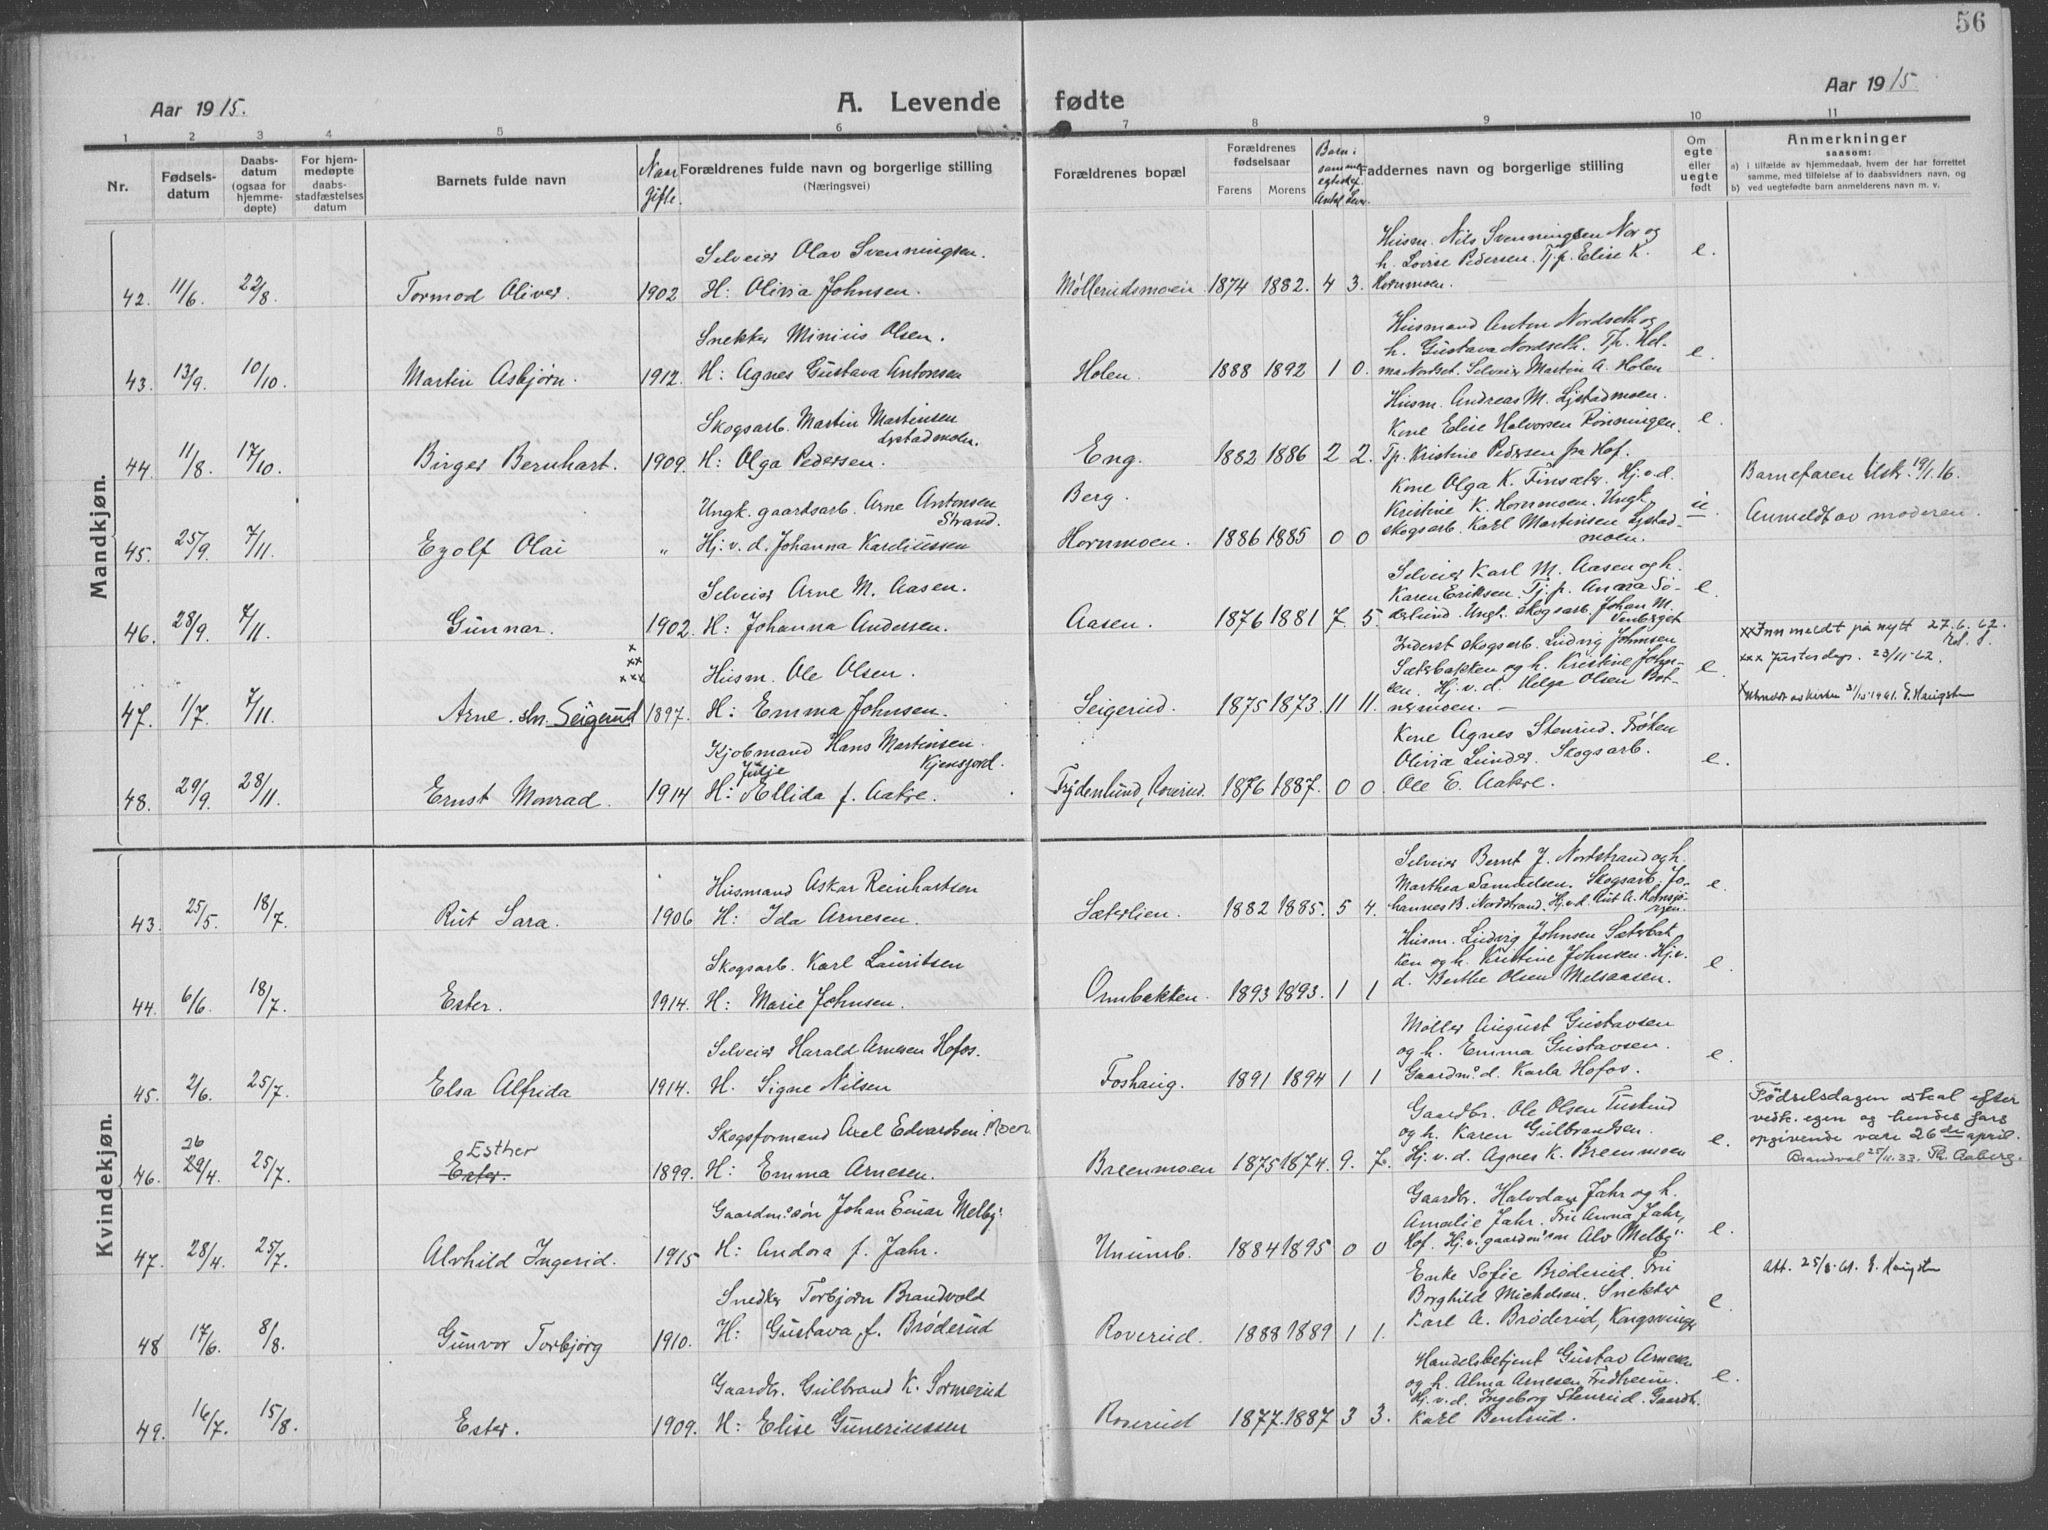 56
Aar 1915.
A. Levende fødte
Aar 1915
1 2 3 4 5 6 7 8 9 10 11
Nr.
Fødsels-
datum
Daabs-
datum
(ogsaa for
hjemme-
døpte)
For hjem-
medøpte
daabs-
stadfæstelses
datum
Barnets fulde navn
Naar
Gifte.
Forældrenes fulde navn og borgerlige stilling
(Næringsvei)
Forældrenes bopæl
Forældrenes
fødselsaar
Farens Morens
Antal Lev.
Faddernes navn og borgerlige stilling
Om
egte
eller
uegte
født
Anmerkninger
saasom:
a) i tilfælde av hjemmedaab, hvem der har forrettet
samme, med tilføielse af to daabsvidners navn, og
b) ved uegtefødte barn anmelderens navn m. v.
Mandkjøn.
Selveier Olav Svenningsen.
Husm. Nils Svenningsen Nor og
h. Lovise Pedersen. Tj.p. Elise K. e.
42. 11/6. 22/8. Tormod Oliver. 1902 H: Olivia Johnsen. Møllerudsmoen 1874 1882. 4 3. Hornmoen.
Snekker Minius Olsen.
Husmand Anton Nordseth og
h. Gustava Nordseth. Tp. Hel- e.
43. 13/9. 10/10. Martin Asbjørn. 1912. H: Agnes Gustava Antonsen Holen. 1888 1892 1 0. ma Nordset. Selveier Martin A. Holen
Skogsarb. Martin Martinsen
Lystadmoen.
Husm. Andreas M. Lystadmoen.
Kone Elise Halvorsen Rønningen. e
44. 11/8. 17/10. Birger Bernhart. 1909. H: Olga Pedersen. Eng. 1882 1886 2 2. Tp. Kristine Pedersen fra Hof.
Ungk. gaardsarb. Arne Antonsen
Strand.
Berg.
Kone Olga K. Finsæter. Hj.v.d.
Kristine K. Hornmoen. Ungk. u.
Barnefaren tilst. 19/1.16.
Anmeldt av moderen.
45. 25/9. 7/11. Eyolf Olai " Hj.v.d. Johanna Kardiussen Hornmoen. 1886 1885 0 0 skogsarb. Karl Martinsen Lystad-
moen.
Selveier Arne M. Aasen.
Selveier Karl M. Aasen og h.
Karen Eriksen. Tj.p. Anna Sö- e.
46. 28/9. 7/11. Gunnar. 1902. H: Johanna Andersen. Aasen. 1876 1881 7 5. derlund. Ungk. skogsarb. Johan M.
x
xx
xxx
Husm. Ole Olsen.
Inderst skogsarb. Ludvig Johnsen
Sæterbakken og h. Kristine John- e.
sen. Hj.v.d. Helga Olsen Bot-
xx Innmeldt på nytt 27.6.62.
xxx 23/11-62.
47. 1/7. 7/11. Arne. Seigerud 1897. H: Emma Johnsen. Seigerud. 1875 1873. 11 11. nermoen. —
x Utmeldt av kirken 1961. E. Haugsten
Kjøbmand Hans Martinsen
Kjensjord.
Julje
Kone Agnes Stenrud. Frøken
Olivia Lunder. Skogsarb. e.
48. 29/9. 28/11. Ernst Monrad. 1914 H: Ellida f. Aakre. Frydenlund, Roverud. 1876 1887. 0 0. Ole E. Aakre.
Kvindekjøn.
Husmand Askar Reinhartsen
Selveier Bernt J. Nordstrand og h.
Marthea Samuelsen. Skogsarb. Jo- e.
43. 25/5. 18/7. Rut Sara. 1906 H: Ida Arnesen. Sæterlien. 1882 1885. 5 4. hannes B. Nordstrand. Hj.v.d. Rut A.
Skogsarb. Karl Lauritsen
Husm. Ludvig Johnsen Sæterbak
ken og h. Kristine Johnsen. Hj.v. e.
44. 6/6. 18/7. Ester. 1914. H: Marie Johnsen. Ormbakken. 1893 1893. 1 1 d. Berthe Olsen Melsaasen.
Selveier Harald Arnesen Hofos.
Møller August Gustavsen
og h. Emma Gustavsen. e.
45. 2/6. 25/7. Elsa Alfrida 1914. H. Signe Nilsen Foshaug. 1891 1894 1 1 Gaardm.d. Karla Hofos.
Skogsformand Axel Edvardsen Moen.
Esther
26
Gaardbr. Ole Olsen Tuskind
og h. Karen Gulbrandsen. e.
Födselsdagen skal efter
vedk. egen og hendes fars
opgivende være 26de april.
Brandval 25/11.33. Th. Aaberg.
46. 29/4. 25/7. Ester. 1899. H: Emma Arnesen. Barenmoen 1875 1874. 9. 7. Hj.v.d. Agnes K. Brenmoen
Gaardm.søn Johan Einar Melby.
Gaardbr. Halvdan Jahr og h.
Amalie Jahr. Frk Anna Jahr, e.
47. 28/4. 25/7. Alvhild Ingerid. 1915 H: Andora f. Jahr. 1884 1895 0 0 Hof. Hj.v. gaardm.søn Alv Melby.
Snedker Torbjørn Brandvold
Enke Sofie Brøderud. Frk
Borghild Michelsen. Snekker e.
Att. 25/8.61. E. Haugsten
48 17/6. 8/8. Gunvor Torbjørg 1910. H: Gustava, f. Brøderud Roverud. 1888 1889 1 1. Karl A. Brøderud, Kongsvinger
Gaardbr. Gulbrand K. Sormerud
Handelsbetjent Gustav Arnesen
og h. Alma Arnesen, Fridheim. e.
Hj.v.d. Ingeborg Stenrud. Gaardb.
49. 16/7. 15/8. Ester. 1909. H: Elise Guneriussen Roverud 1877. 1887 3 3. Karl Bentrud.